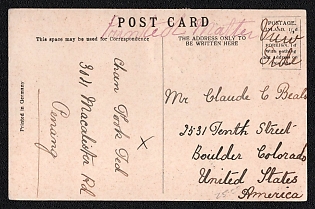 POST CARD
Printed Matter
This space may be used for Correspondence
THE ADDRESS ONLY TO
BE WRITTEN HERE
POSTAGE.
View
Side
Mr Claude C Beals
2531 Tenth Street
Boulder Colorado
United States
America
Chan Teck
304 Macalister Rd
Penang
X
Printed in Germany